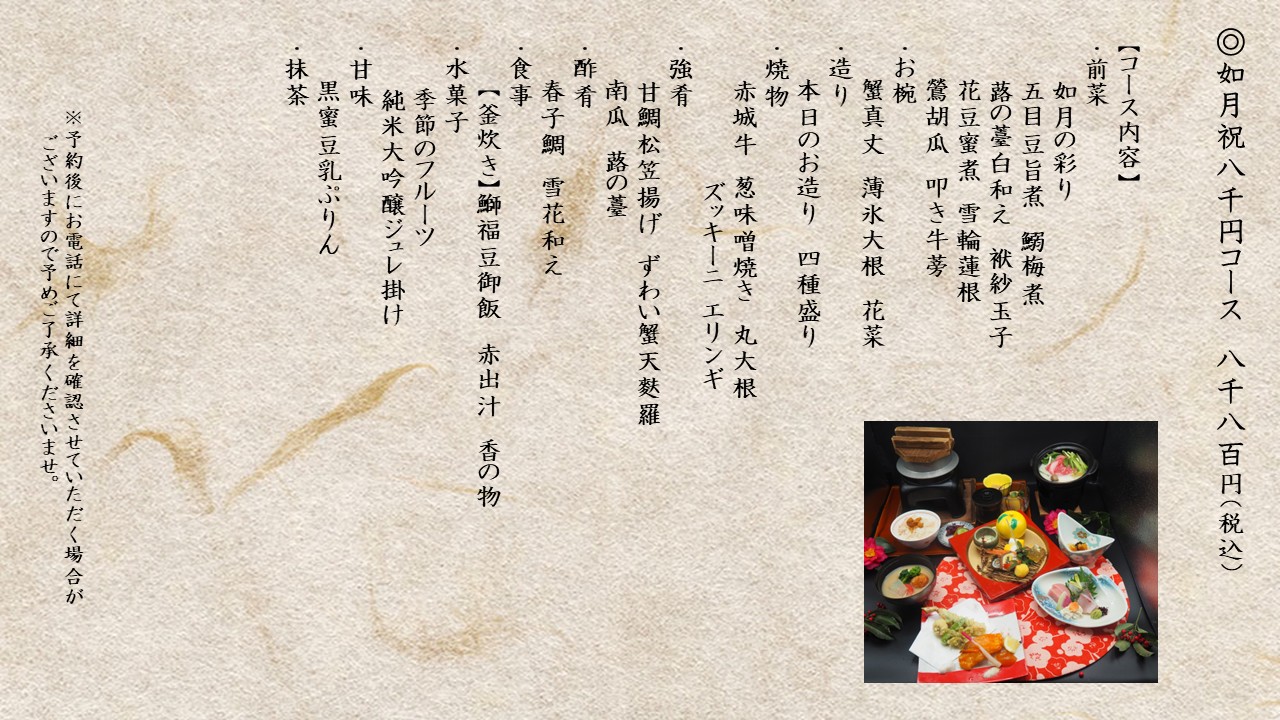 ◎如月祝八千円コース　八千八百円（税込）
【コース内容】
・前菜
如月の彩り
五目豆旨煮　鰯梅煮
蕗の薹白和え　袱紗玉子
花豆蜜煮　雪輪蓮根
鶯胡瓜　叩き牛蒡
・お椀
蟹真丈　薄氷大根　花菜
・造り
本日のお造り　四種盛り
・焼物
赤城牛　葱味噌焼き　丸大根
ズッキーニ　エリンギ
・強肴
甘鯛松笠揚げ　ずわい蟹天麩羅
南瓜　蕗の薹
・酢肴
春子鯛　雪花和え
・食事
【釜炊き】鰤福豆御飯　赤出汁　香の物
・水菓子
季節のフルーツ
純米大吟醸ジュレ掛け
・甘味
黒蜜豆乳ぷりん
・抹茶
※予約後にお電話にて詳細を確認させていただく場合が
ございますので予めご了承くださいませ。